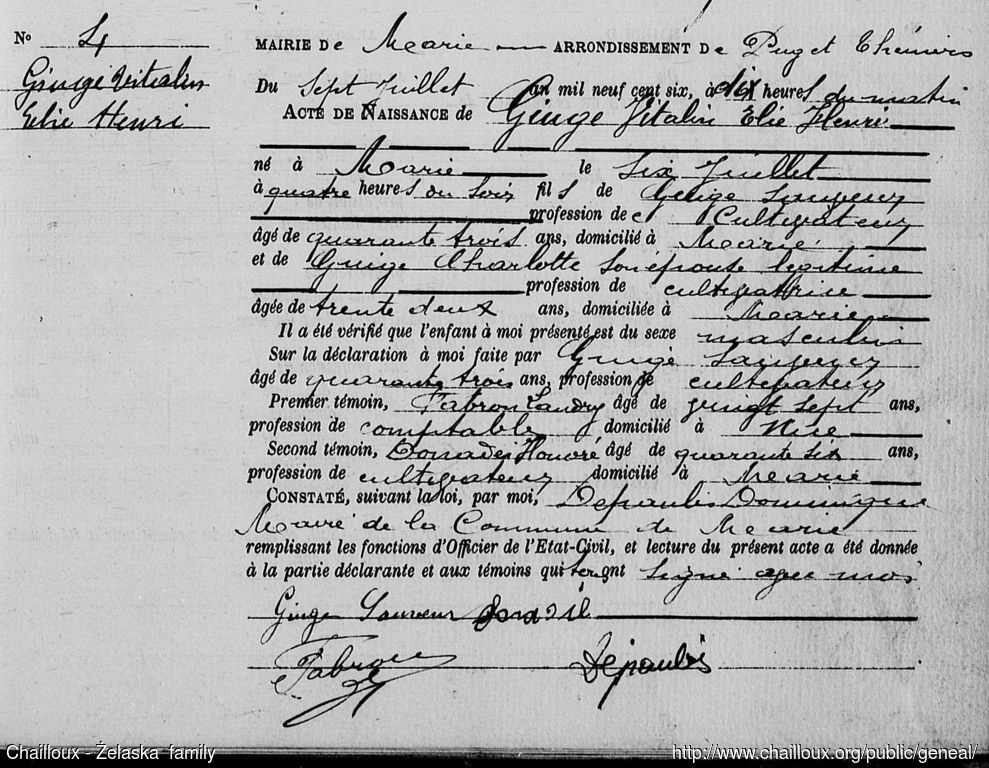 No 4
Ginge Vitalin
Elie Henri
MAIRIE De Marie ARRONDISSEMENT De Puget Théniers
Du Sept Juillet an mil neuf cent six, à dix heures du matin
ACTE DE NAISSANCE de Ginge Vitalin Elie Henri
né à Marie le Six Juillet
à quatre heures du soir fils de Ginge Sauveur
profession de Cultivateur
âgé de quarante trois ans, domicilié à Marie
et de Guige Charlotte son épouse légitime
profession de cultivatrice
âgée de trente deux ans, domiciliée à Marie
Il a été vérifié que l'enfant à moi présenté est du sexe masculin
Sur la déclaration à moi faite par Ginge Sauveur
âgé de quarante trois ans, profession de cultivateur
Premier témoin, Fabron Landry âgé de vingt sept ans,
profession de comptable domicilié à Nice
Second témoin, Donadey Honoré âgé de quarante six ans,
profession de cultivateur domicilié à Marie
CONSTATÉ, suivant la loi, par moi, Depaulis Dominique
Maire de la Commune de Marie
remplissant les fonctions d'Officier de l'Etat-Civil, et lecture du présent acte a été donnée
à la partie déclarante et aux témoins qui ont signé avec moi
Ginge Sauveur
Fabron Depaulis
Chailloux - Zelaska family http://www.chailloux.org/public/geneal/